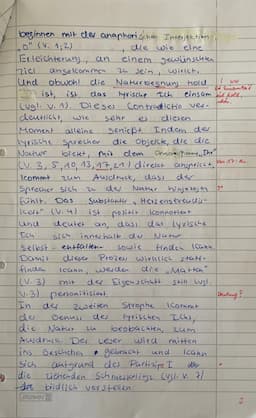 beginnen mit der anaphorischen Interjektion
„O" (V. 1, 2), die wie eine
Erleichterung, an einem gewünschten
Ziel angekommen zu sein, wirkt.
Und obwohl die Naturbegegnung hold
ist, ist das lyrische Ich einsam
(vgl. V. 1). Dieses Contradictio ver-
deutlicht, wie sehr es diesen
Moment alleine genießt. Indem der
lyrische Sprecher die Objekte, die die
Natur bietet, mit dem „Ihr"
V. 3, 5, 10, 13, direkt anspricht,
kommt zum Ausdruck, dass der
Sprecher sich zu der Natur hingezogen
fühlt. Das Substantiv
(V. 4) ist positiv konnotiert
und deutet an, dass das lyrische
Ich sich innerhalb der Natur
selbst entfalten sowie finden kann.
Damit dieser Prozess wirklich statt-
finden kann, werden die „Matten"
(V. 3) mit der Eigenschaft still (vgl.
V. 3) personifiziert.
Deutung?
In der zweiten Strophe kommt
der Genuss des lyrischen Ichs,
die Natur zu beobachten, zum
Ausdruck. Der Leser wird mitten
ins Geschehen gebracht und kann
sich aufgrund des Partizips I
die Schmetterlings (vgl. V. 7)
bildlich vorstellen.
2